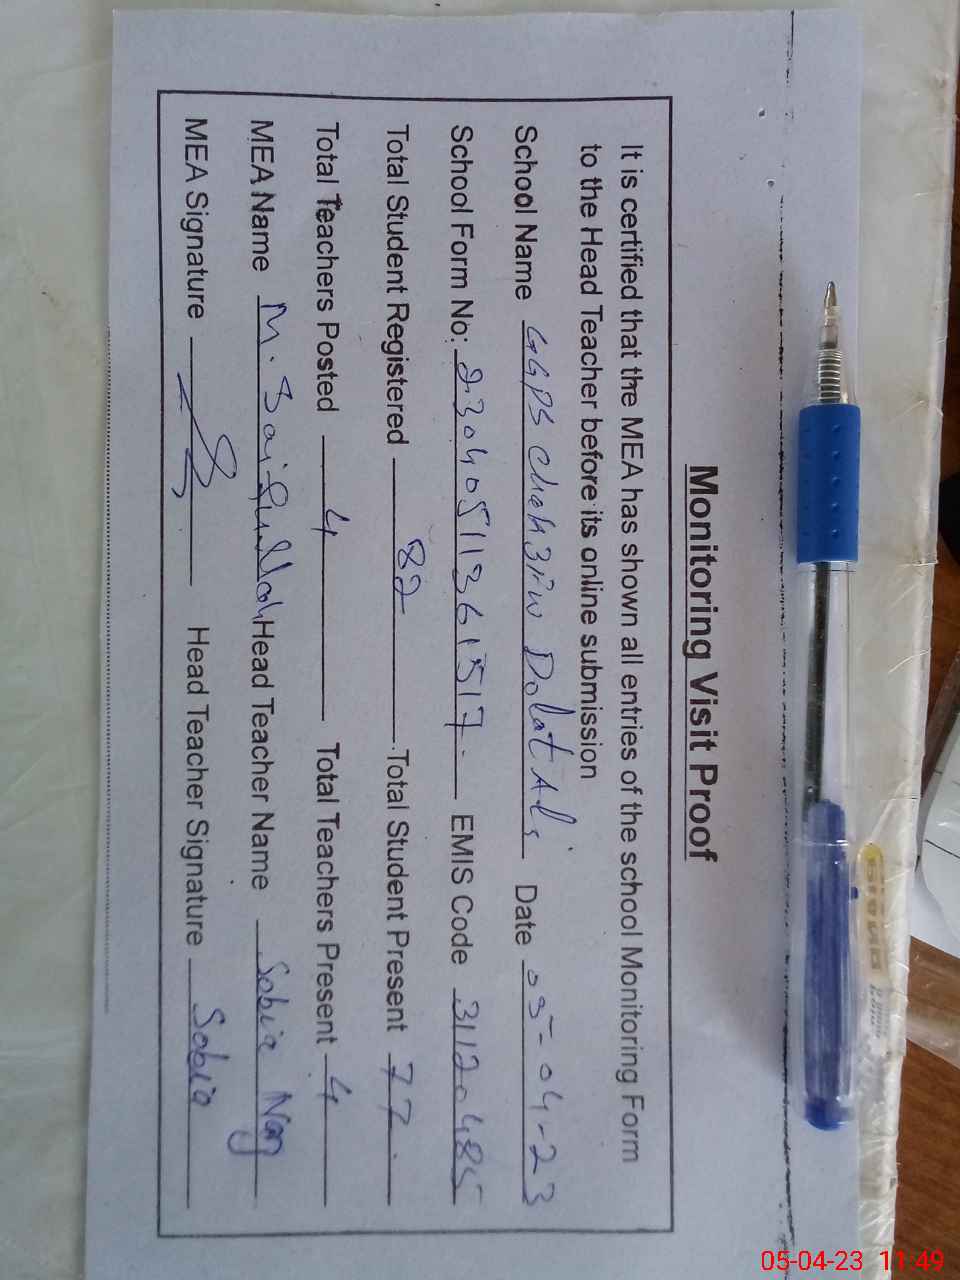 Monitoring Visit Proof
It is certified that the MEA has shown all entries of the school Monitoring Form
to the Head Teacher before its online submission
School Name GGPS chah 3iiw Dolat Ali Date 05-04-23
School Form No: 23040511361517 EMIS Code 31120485
Total Student Registered 82 Total Student Present 77
Total Teachers Posted 4 Total Teachers Present 4
MEA Name M. Saifullah Head Teacher Name Sobia Naz
MEA Signature Head Teacher Signature Sobia
05-04-23 11:49